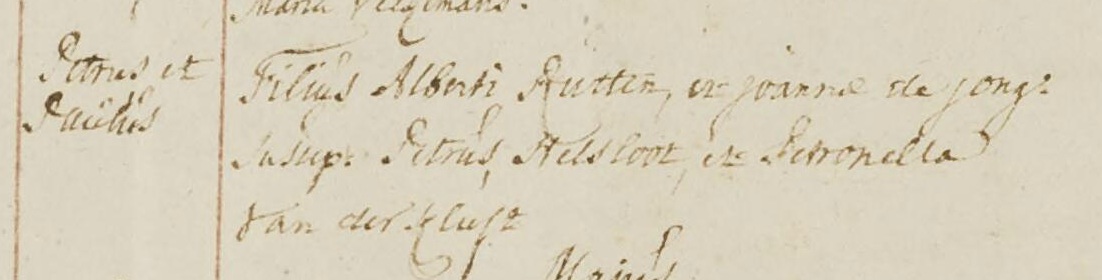 Maria
Petrus et
Paulus
Filius Alberti Rutten, et joannæ de jong.
Susep: Petrus Helsloot, et Petronella
van der
Majus